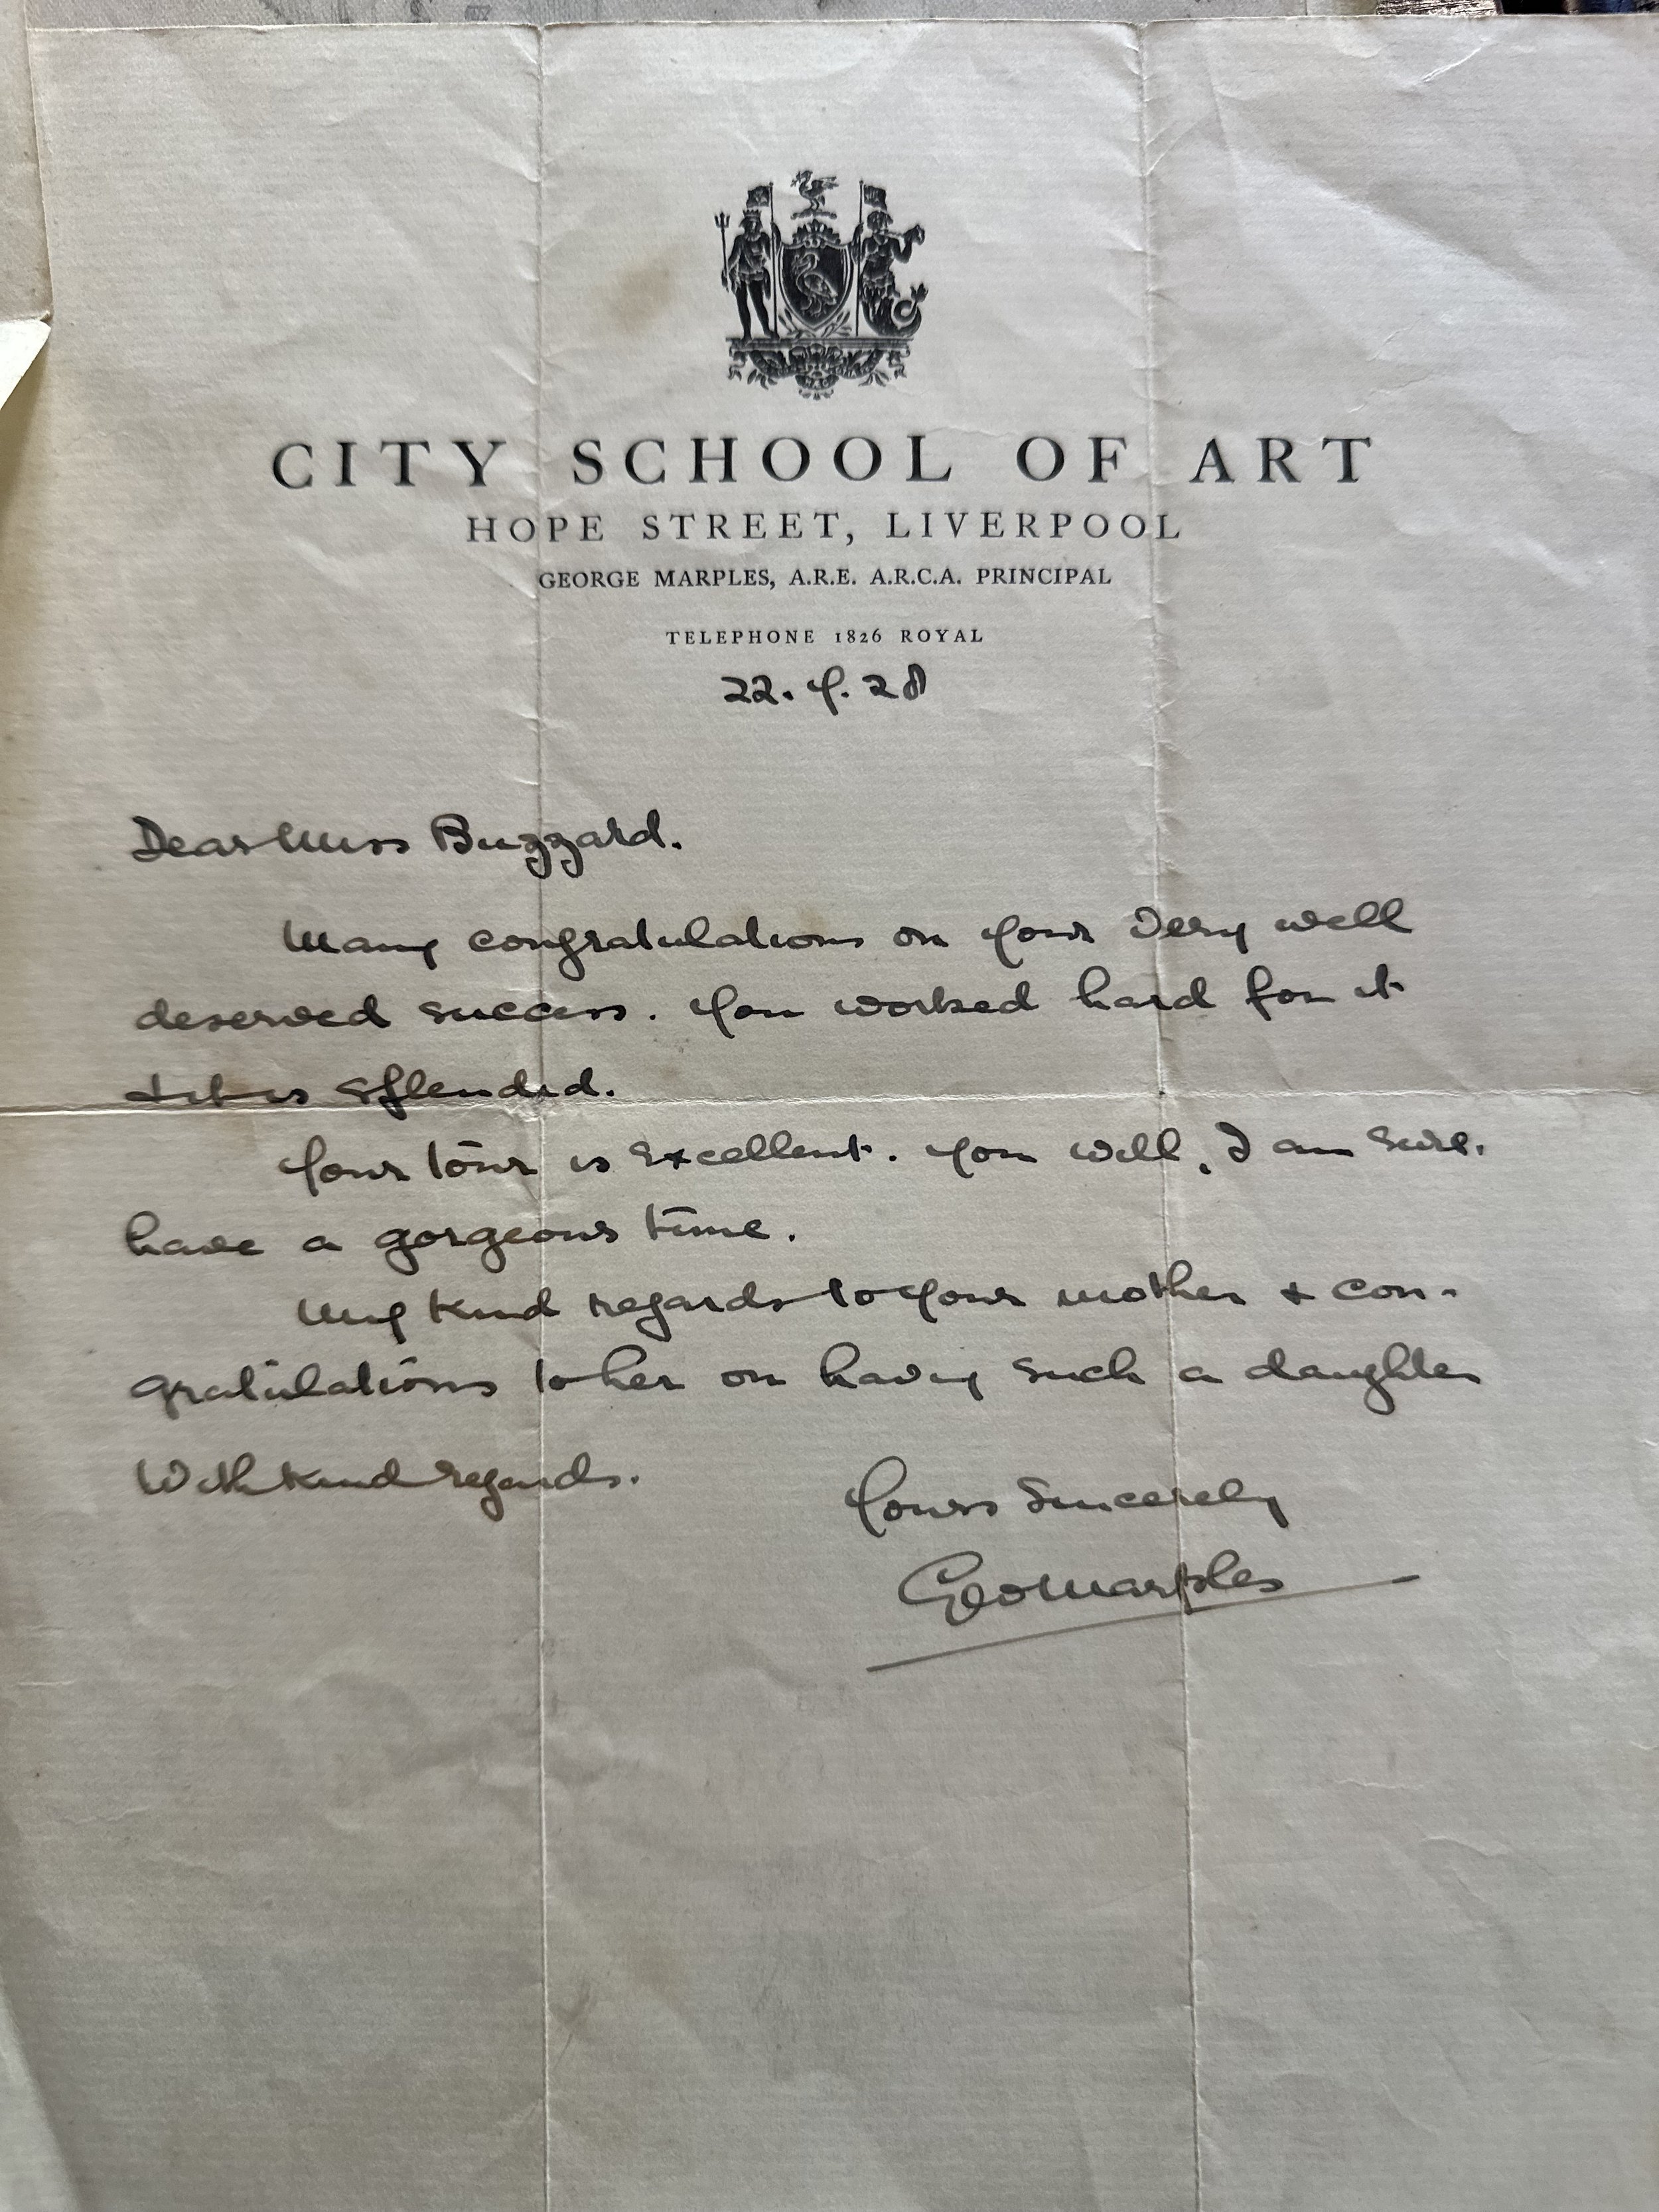 CITY SCHOOL OF ART
HOPE STREET, LIVERPOOL
GEORGE MARPLES, A.R.E. A.R.C.A. PRINCIPAL
TELEPHONE 1826 ROYAL
22. 9. 28
Dear Miss Buzzard.
Many congratulations on your very well
deserved success. You worked hard for it
& it is splendid.
Your tour is excellent. You will, I am sure,
have a gorgeous time.
My kind regards to your mother & con-
gratulations to her on having such a daughter
With kind regards.
Yours Sincerely
Geo Marples